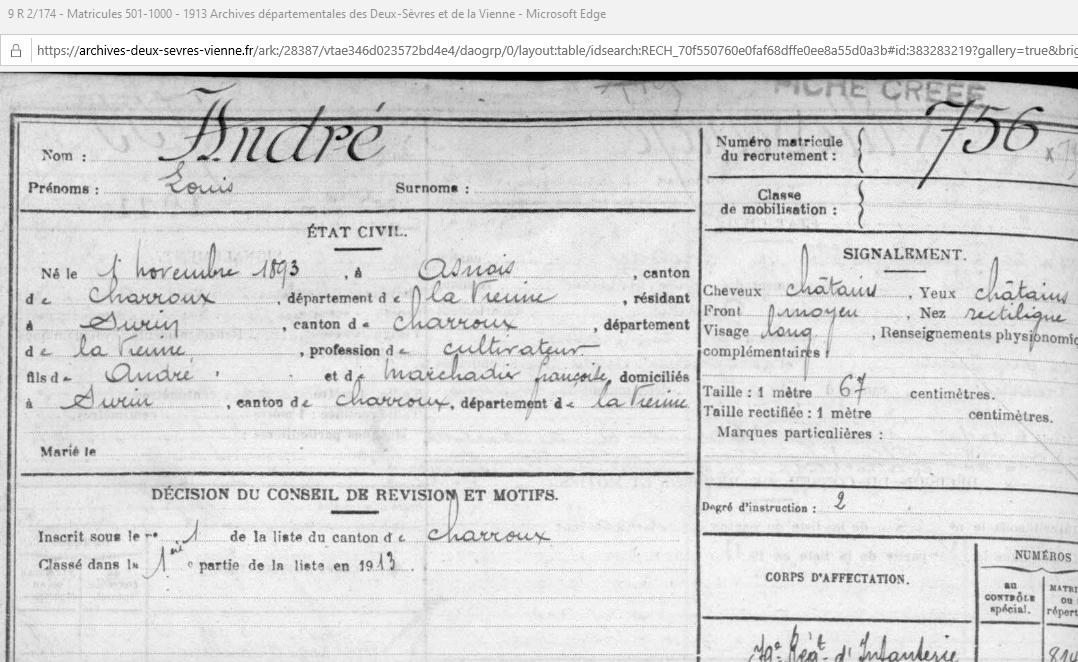 9 R 2/174 - Matricules 501-1000 - 1913 Archives départementales des Deux-Sèvres et de la Vienne - Microsoft Edge
https://archives-deux-sevres-vienne.fr/ark:/28387/vtae346d023572bd4e4/daogrp/0/layout:table/idsearch:RECH_70f550760e0faf68dffe0ee8a55d0a3b#id:383283219?gallery=true&brig
FICHE CRÉÉE
Nom : André
Prénoms : Louis Surnoms :
Numéro matricule du recrutement : 756
Classe de mobilisation :
ÉTAT CIVIL.
Né le 1er novembre 1893, à Asnois, canton
de Charroux, département de la Vienne, résidant
à Surin, canton de Charroux, département
de la Vienne, profession de cultivateur
fils de André et de Marchadier françoise, domiciliés
à Surin, canton de Charroux, département de la Vienne
Marié le
SIGNALEMENT.
Cheveux châtains, Yeux châtains
Front moyen, Nez rectiligne
Visage long, Renseignements physionomiq
complémentaires :
Taille : 1 mètre 67 centimètres.
Taille rectifiée : 1 mètre centimètres.
Marques particulières :
DÉCISION DU CONSEIL DE REVISION ET MOTIFS.
Inscrit sous le n° 1 de la liste du canton de Charroux
Classé dans la 1ère partie de la liste en 1913
Degré d'instruction : 2
CORPS D'AFFECTATION.
NUMÉROS
au CONTRÔLE spécial.
MATRI
ou
répert
Rég.t d'Infanterie